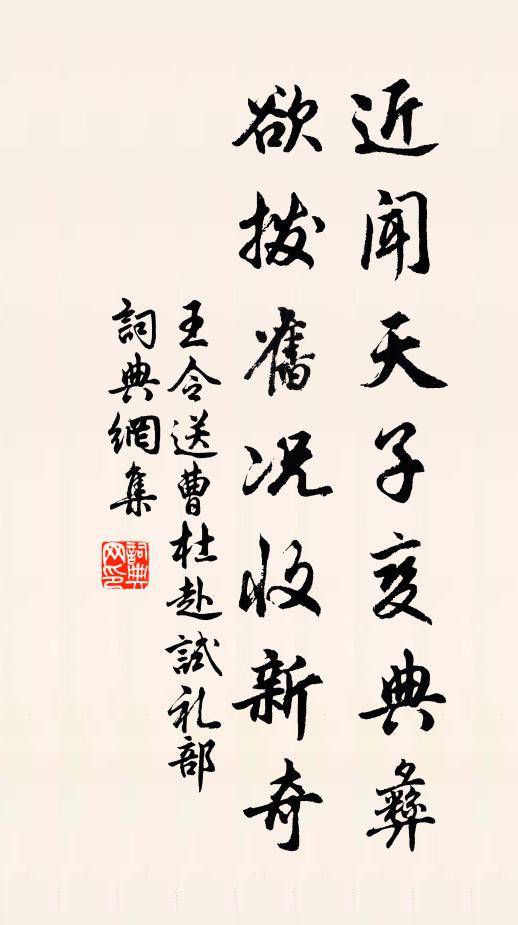 近闻天子变典彝
欲拨舊况收新奇
王令送曹杜赴試礼部
詞典網集
詞典网印